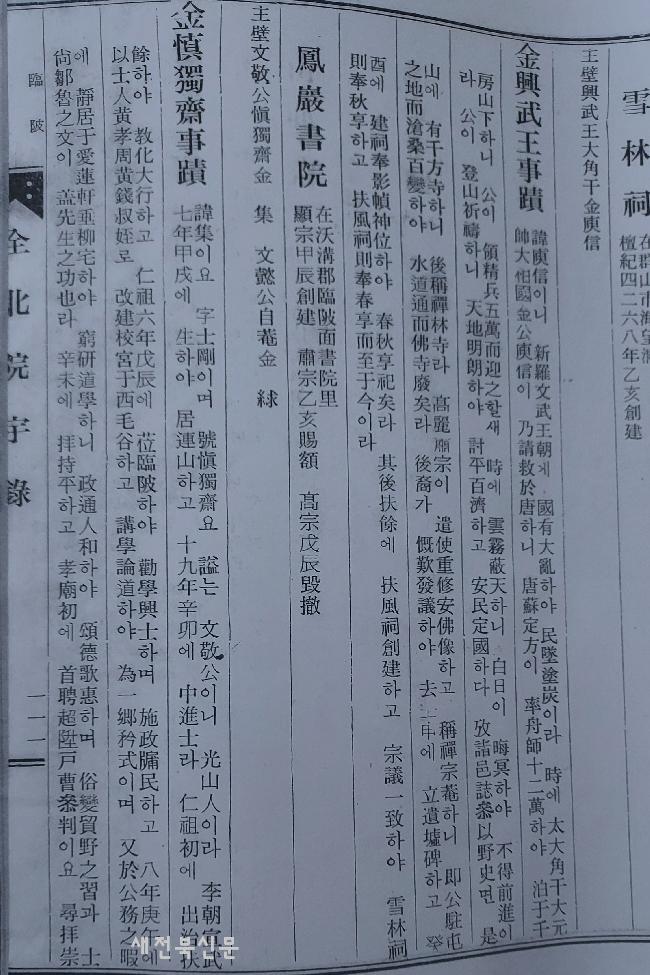 雪林祠
在群山市海望
檀紀四二六八年乙亥創建
主壁興武王大角干金庾信
金興武王事蹟
諱庾信이니 新羅文武王朝에 國有大亂하야 民墜塗炭이라 時에 太大角干大元
帥大相國金公庾信이 乃請救於唐하니 唐蘇定方이 率舟師十二萬하야 泊于千
房山下하니 公이 領精兵五萬而迎之할새 時에 雲霧蔽天하니 白日이 晦冥하야 不得前進이
라 公이 登山祈禱하니 天地明朗하야 討平百濟하고 安民定國하다 攷諸邑誌叅以野史면 是
山에 有千方寺하니 後稱禪林寺라 高麗 宗이 遣使重修安佛像하고 稱禪宗菴하니 即公駐屯
之地而滄桑百變하야 水道通而佛寺廢矣라 後裔가 慨歎發議하야 去 에 立遺墟碑하고 癸
酉에 建祠奉影幀神位하야 春秋享祀矣라 其後扶餘에 扶風祠創建하고 宗議一致하야 雪林祠
則奉秋享하고 扶風祠則奉春享而至于今이라
鳳巖書院
在沃溝郡臨陂面書院里
顯宗甲辰創建 肅宗乙亥賜額 高宗戊辰毀撤
主壁文敬公愼獨齋金 集 文懿公自菴金 絿
金愼獨齋事蹟
諱集이요 字士剛이며 號愼獨齋요 謚는 文敬公이니 光山人이라 李朝宣武
七年甲戌에 生하야 居連山하고 十九年辛卯에 中進士라 仁祖初에 出治扶
餘하야 教化大行하고 仁祖六年戊辰에 莅臨陂하야 勸學興士하며 施政牖民하고 八年庚午에
以士人黃孝周黃錢叔姪로 改建校宮于西毛谷하고 講學論道하야 為一鄉矜式이며 又於公務之暇
에 靜居于愛蓮軒垂柳宅하야 窮研道學하니 政通人和하야 頌德歌惠하며 俗變貿野之習과 士
尙鄒魯之文이 盖先生之功也라 辛未에 拝持平하고 孝廟初에 首聘超陞戸曹叅判이요 尋拝崇
臨陂
全北院宇錄
一一一
새전북신문